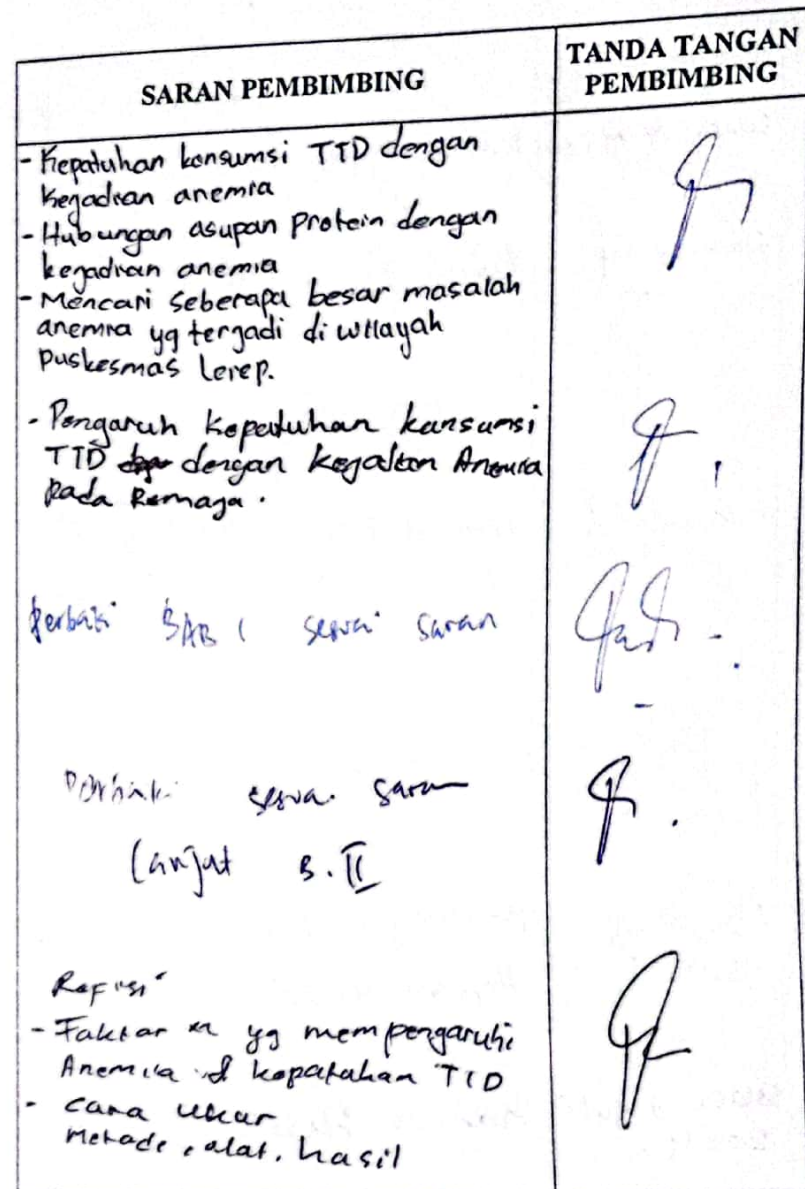 SARAN PEMBIMBING
TANDA TANGAN
PEMBIMBING
- Kepatuhan konsumsi TTD dengan
kejadian anemia
- Hubungan asupan protein dengan
kejadian anemia
- Mencari seberapa besar masalah
anemia yg terjadi di wilayah
Puskesmas Lerep.
- Pengaruh kepatuhan konsumsi
TTD dengan kejadian Anemia
pada Remaja.
Perbaiki BAB I sesuai saran
Perbaiki sesuai saran
Lanjut B. II
Refisi
- Faktor yg mempengaruhi
Anemia kepatuhan TTD
- cara ukur
metode, alat, hasil